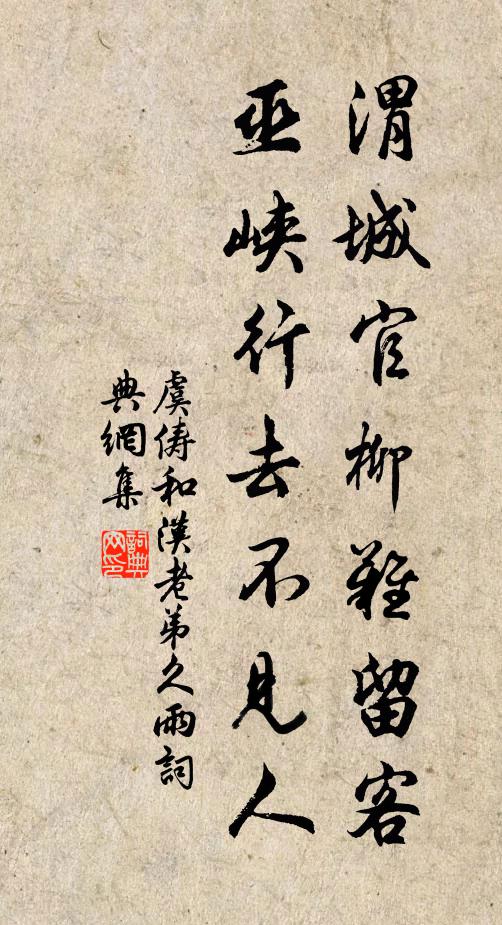 渭城官柳難留客
巫峽行去不見人
虞儔和漢老弟久雨詞
典網集
詞典
网印